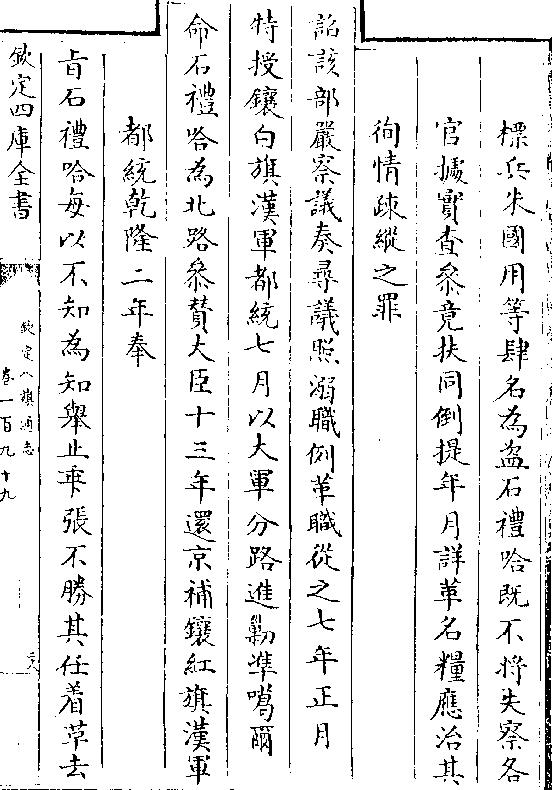 標兵朱國用等肆名為盜石禮哈既不將失察各
官據實查叅竟扶同倒提年月詳革名糧應治其
徇情疎縱之罪
詔該部嚴察議奏尋議照溺職例革職從之七年正月
特授鑲白旗漢軍都統七月以大軍分路進勦準噶爾
命石禮哈為北路叅贊大臣十三年還京補鑲紅旗漢軍
都統乾隆二年奉
旨石禮哈每以不知為知舉止乖張不勝其任着革去
欽定四庫全書
欽定八旗通志
卷一百九十九